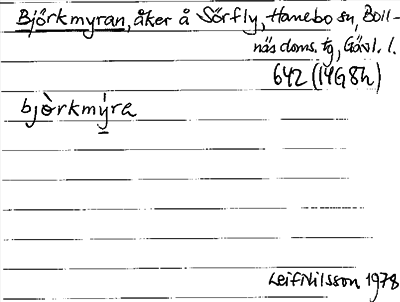 Björkmyran, åker å Sörfly, Hanebo sn, Boll-
näs doms. tg, Gävl. l.
642 (14G8h)
bjò̀rkmýra
Leif Nilsson 1978